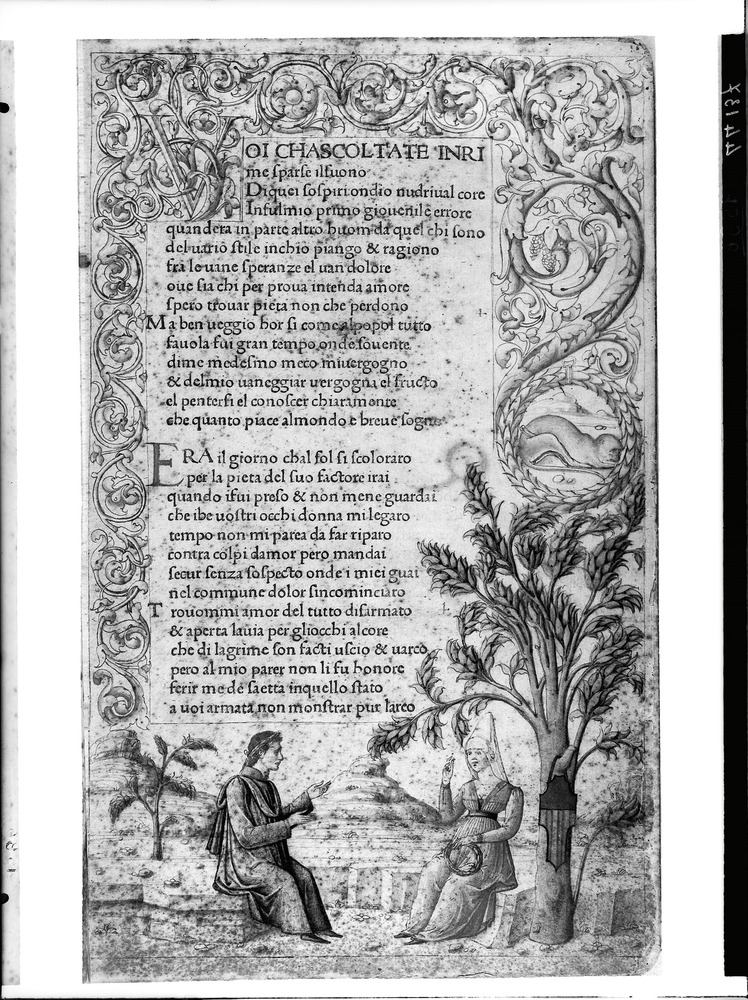 VOI CHASCOLTATE INRI
me sparse ilsuono
Di quei sospiri ondio nudriual core
Insulmio primo giouenile errore
quandera in parte altro huom da quel chi sono
del uario stile inchio piango & ragiono
fra le uane speranze el uan dolore
oue sia chi per proua intenda amore
spero trouar pieta non che perdono
Ma ben ueggio hor si come al popol tutto
fauola fui gran tempo onde souente
di me medesmo meco miuergogno
& delmio uaneggiar uergogna el fructo
el pentersi el conoscer chiaramente
che quanto piace almondo e breue sogno
ERA il giorno chal sol si scoloraro
per la pieta del suo factore irai
quando ifui preso & non mene guardai
che ibe uostri occhi donna mi legaro
tempo non mi parea da far riparo
contra colpi damor pero mandai
secur senza sospecto onde i miei guai
nel commune dolor sincominciaro
Trouommi amor del tutto disarmato
& aperta lauia per gliocchi alcore
che di lagrime son facti uscio & uarco
pero al mio parer non li fu honore
ferir me de saetta inquello stato
a uoi armata non monstrar pur larco